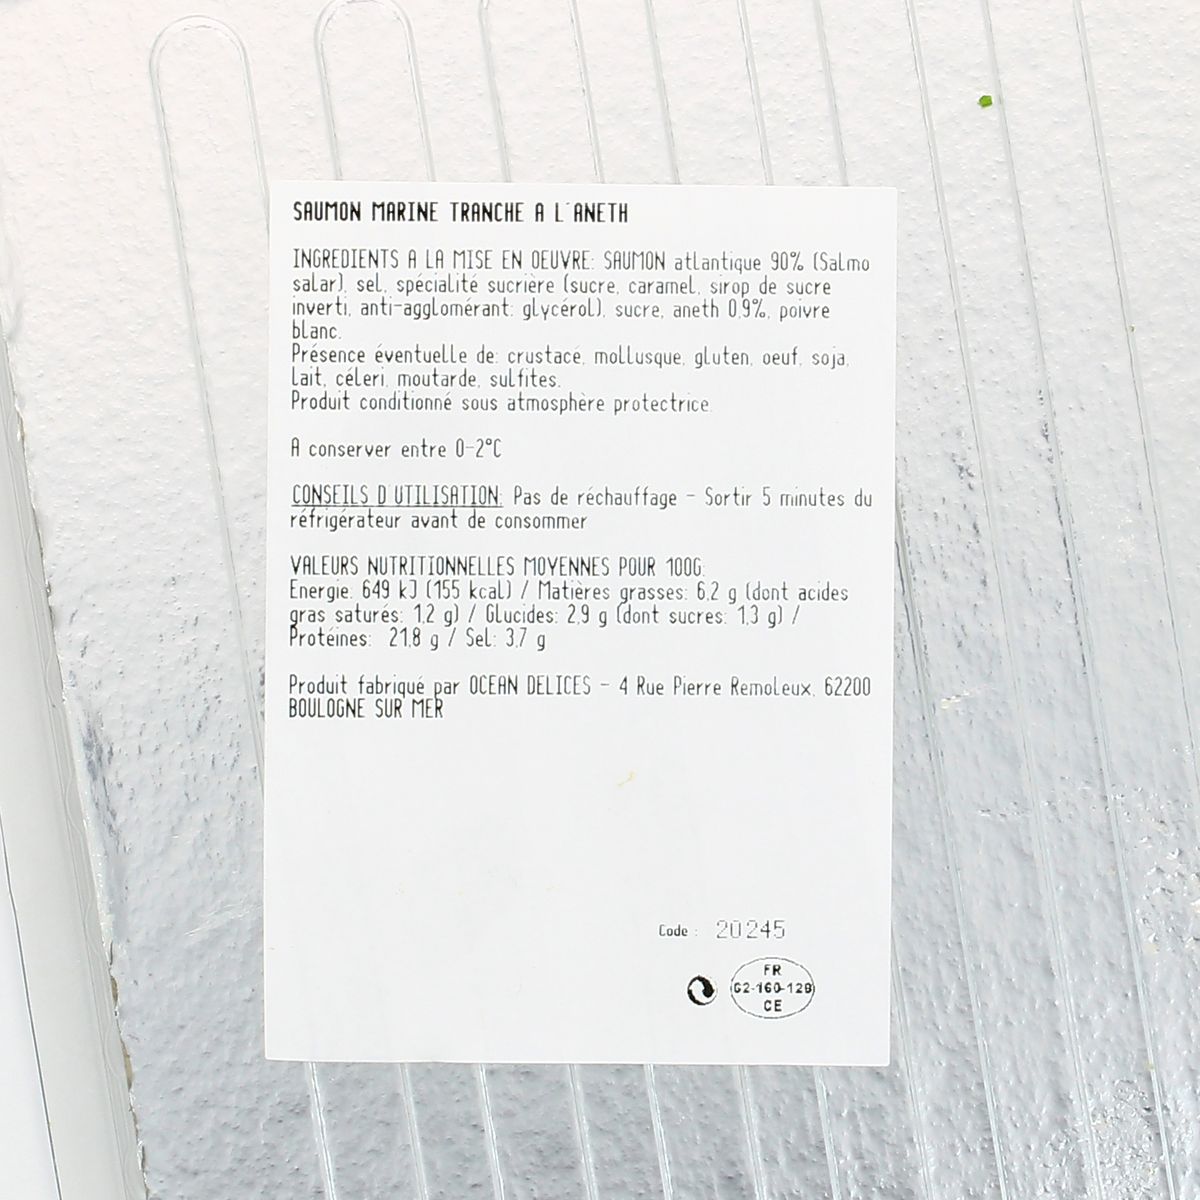 SAUMON MARINE TRANCHE A L'ANETH
INGREDIENTS A LA MISE EN OEUVRE: SAUMON atlantique 90% (Salmo
salar), sel, spécialité sucrière (sucre, caramel, sirop de sucre
inverti, anti-agglomérant: glycérol), sucre, aneth 0,9%, poivre
blanc.
Présence éventuelle de: crustacé, mollusque, gluten, oeuf, soja,
lait, céleri, moutarde, sulfites.
Produit conditionné sous atmosphère protectrice.
A conserver entre 0-2°C
CONSEILS D'UTILISATION: Pas de réchauffage - Sortir 5 minutes du
réfrigérateur avant de consommer
VALEURS NUTRITIONNELLES MOYENNES POUR 100G:
Energie: 649 kJ (155 kcal) / Matières grasses: 6,2 g (dont acides
gras saturés: 1,2 g) / Glucides: 2,9 g (dont sucres: 1,3 g) /
Protéines: 21,8 g / Sel: 3,7 g
Produit fabriqué par OCEAN DELICES - 4 Rue Pierre Remoleux, 62200
BOULOGNE SUR MER
Code : 20245
FR
62-160-129
CE